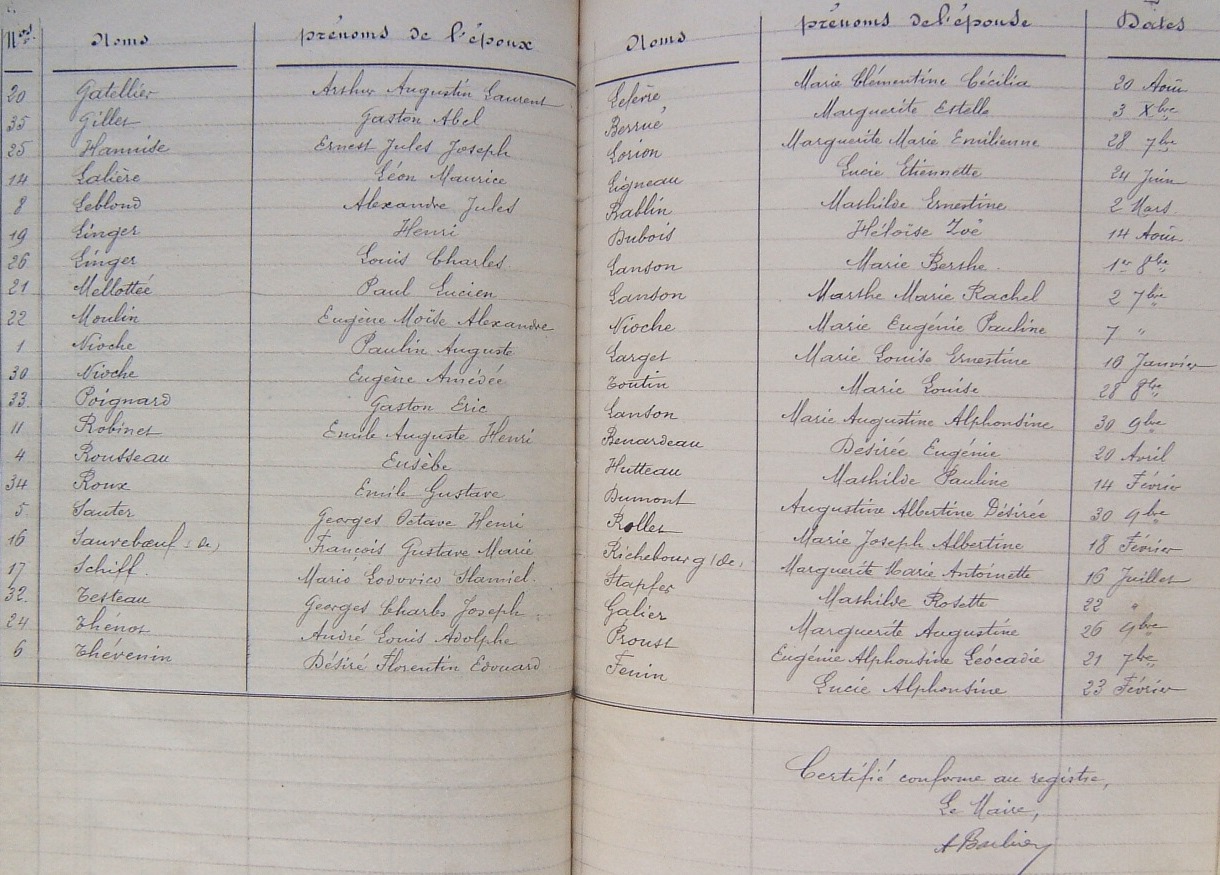 Nos Noms prénoms de l'époux Noms prénoms de l'épouse Dates
20 Gatellier Arthur Augustin Laurent Lefèvre Marie Clémentine Cécilia 20 Août
35 Gillet Gaston Abel Berrué Marguerite Estelle 3 Xbre
25 Hannise Ernest Jules Joseph Lorion Marguerite Marie Emilienne 28 7bre
14 Lalière Léon Maurice Ligneau Lucie Etiennette 24 Juin
8 Leblond Alexandre Jules Bablin Mathilde Ernestine 2 Mars
19 Linger Henri Dubois Héloïse Zoë 14 Août
26 Linger Louis Charles Lanson Marie Berthe 1er 8bre
21 Mellottée Paul Lucien Lanson Marthe Marie Rachel 2 7bre
22 Moulin Eugène Moïse Alexandre Nioche Marie Eugénie Pauline 7 "
1 Nioche Paulin Auguste Larget Marie Louise Ernestine 16 Janvier
30 Nioche Eugène Amédée Toutin Marie Louise 28 8bre
33 Poignard Gaston Eric Lanson Marie Augustine Alphonsine 30 9bre
11 Robinet Emile Auguste Henri Benardeau Desirée Eugénie 20 Avril
4 Rousseau Eusèbe Hutteau Mathilde Pauline 14 Février
34 Roux Emile Gustave Dumont Augustine Albertine Désirée 30 9bre
5 Sauter Georges Octave Henri Rollet Marie Joseph Albertine 18 Février
16 Sauvebœuf (de) François Gustave Marie Richebourg (de) Marguerite Marie Antoinette 16 Juillet
17 Schiff Mario Lodovico Hamiel Stapfer Mathilde Rosette 22 "
32 Testeau Georges Charles Joseph Galier Marguerite Augustine 26 9bre
24 Thénot André Louis Adolphe Proust Eugénie Alphonsine Léocadie 21 7bre
6 Thevenin Désiré Florentin Edouard Fenin Lucie Alphonsine 23 Février
Certifié conforme au registre,
Le Maire,
A Barbier